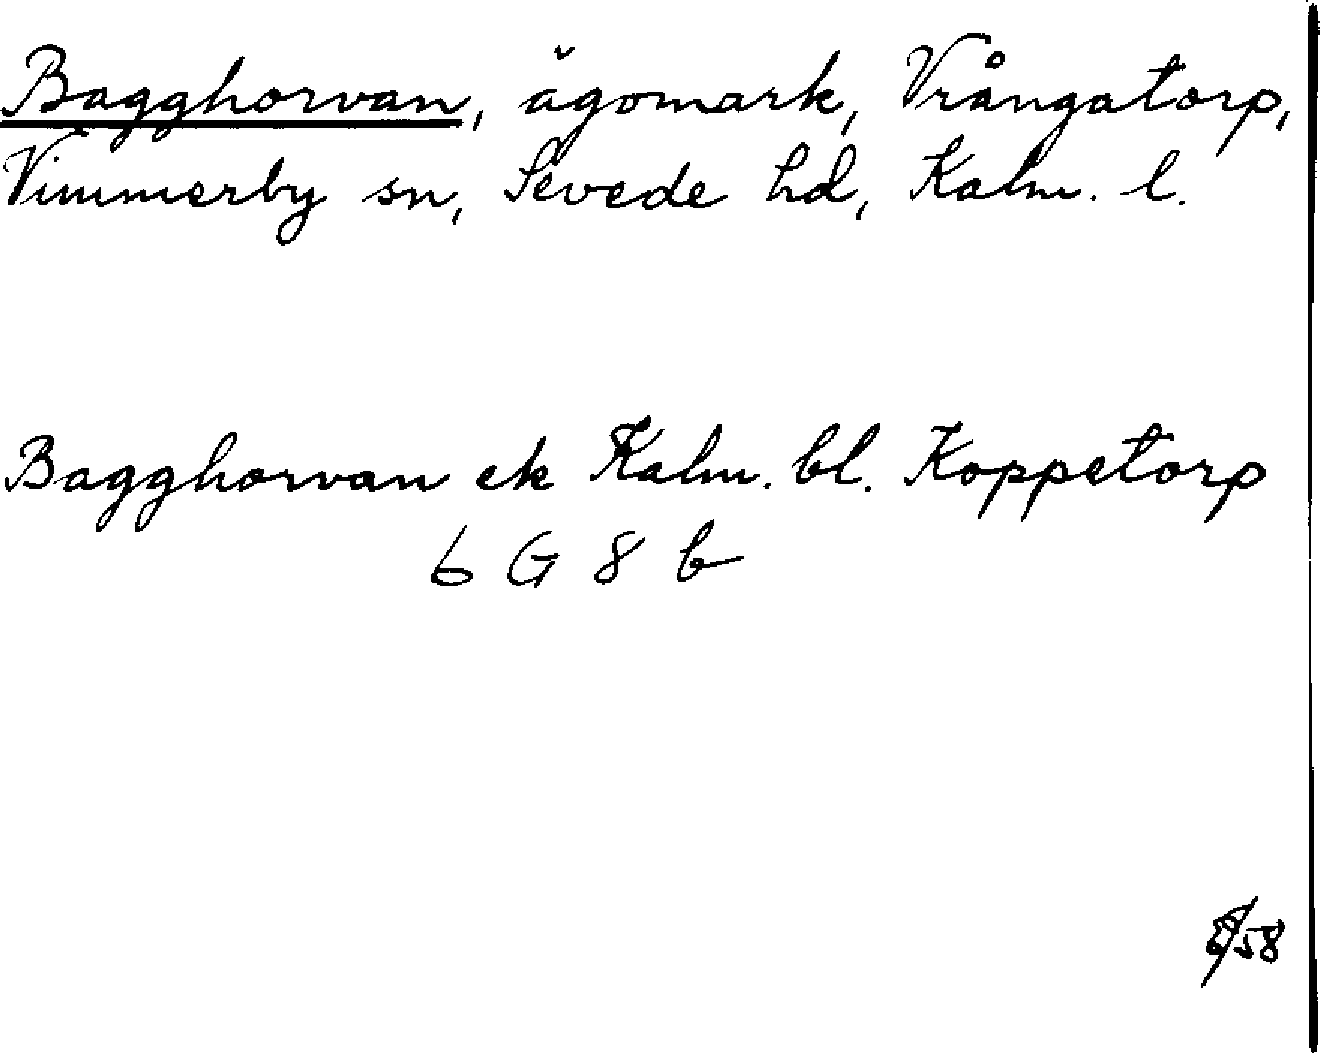 Bagghorvan, ägomark, Vrångatorp,
Vimmerby sn, Sevede hd, Kalm. l.
Bagghorvan ek Kalm. bl. Koppetorp
6 G 8 b
58